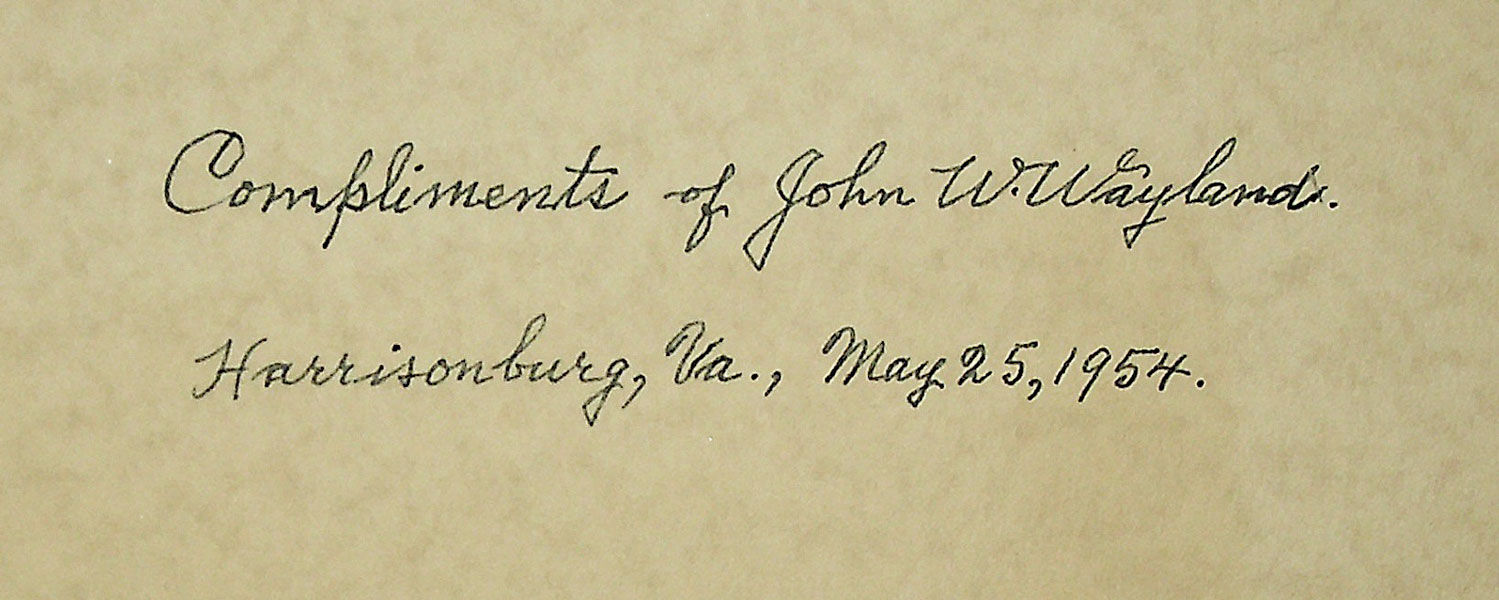 Compliments of John W. Wayland.
Harrisonburg, Va., May 25, 1954.